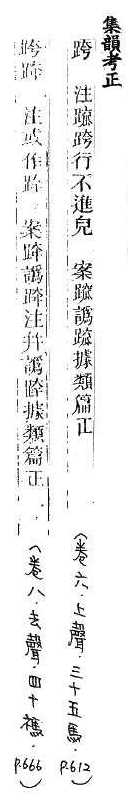 集韻考正
跨　注䠧跨行不進皃　案䠧譌䠧據類篇正
（卷六．上聲．三十五馬．p.612）
跨　注或作　案　譌　注幷譌　據類篇正
（卷八．去聲．四十禡．p.666）